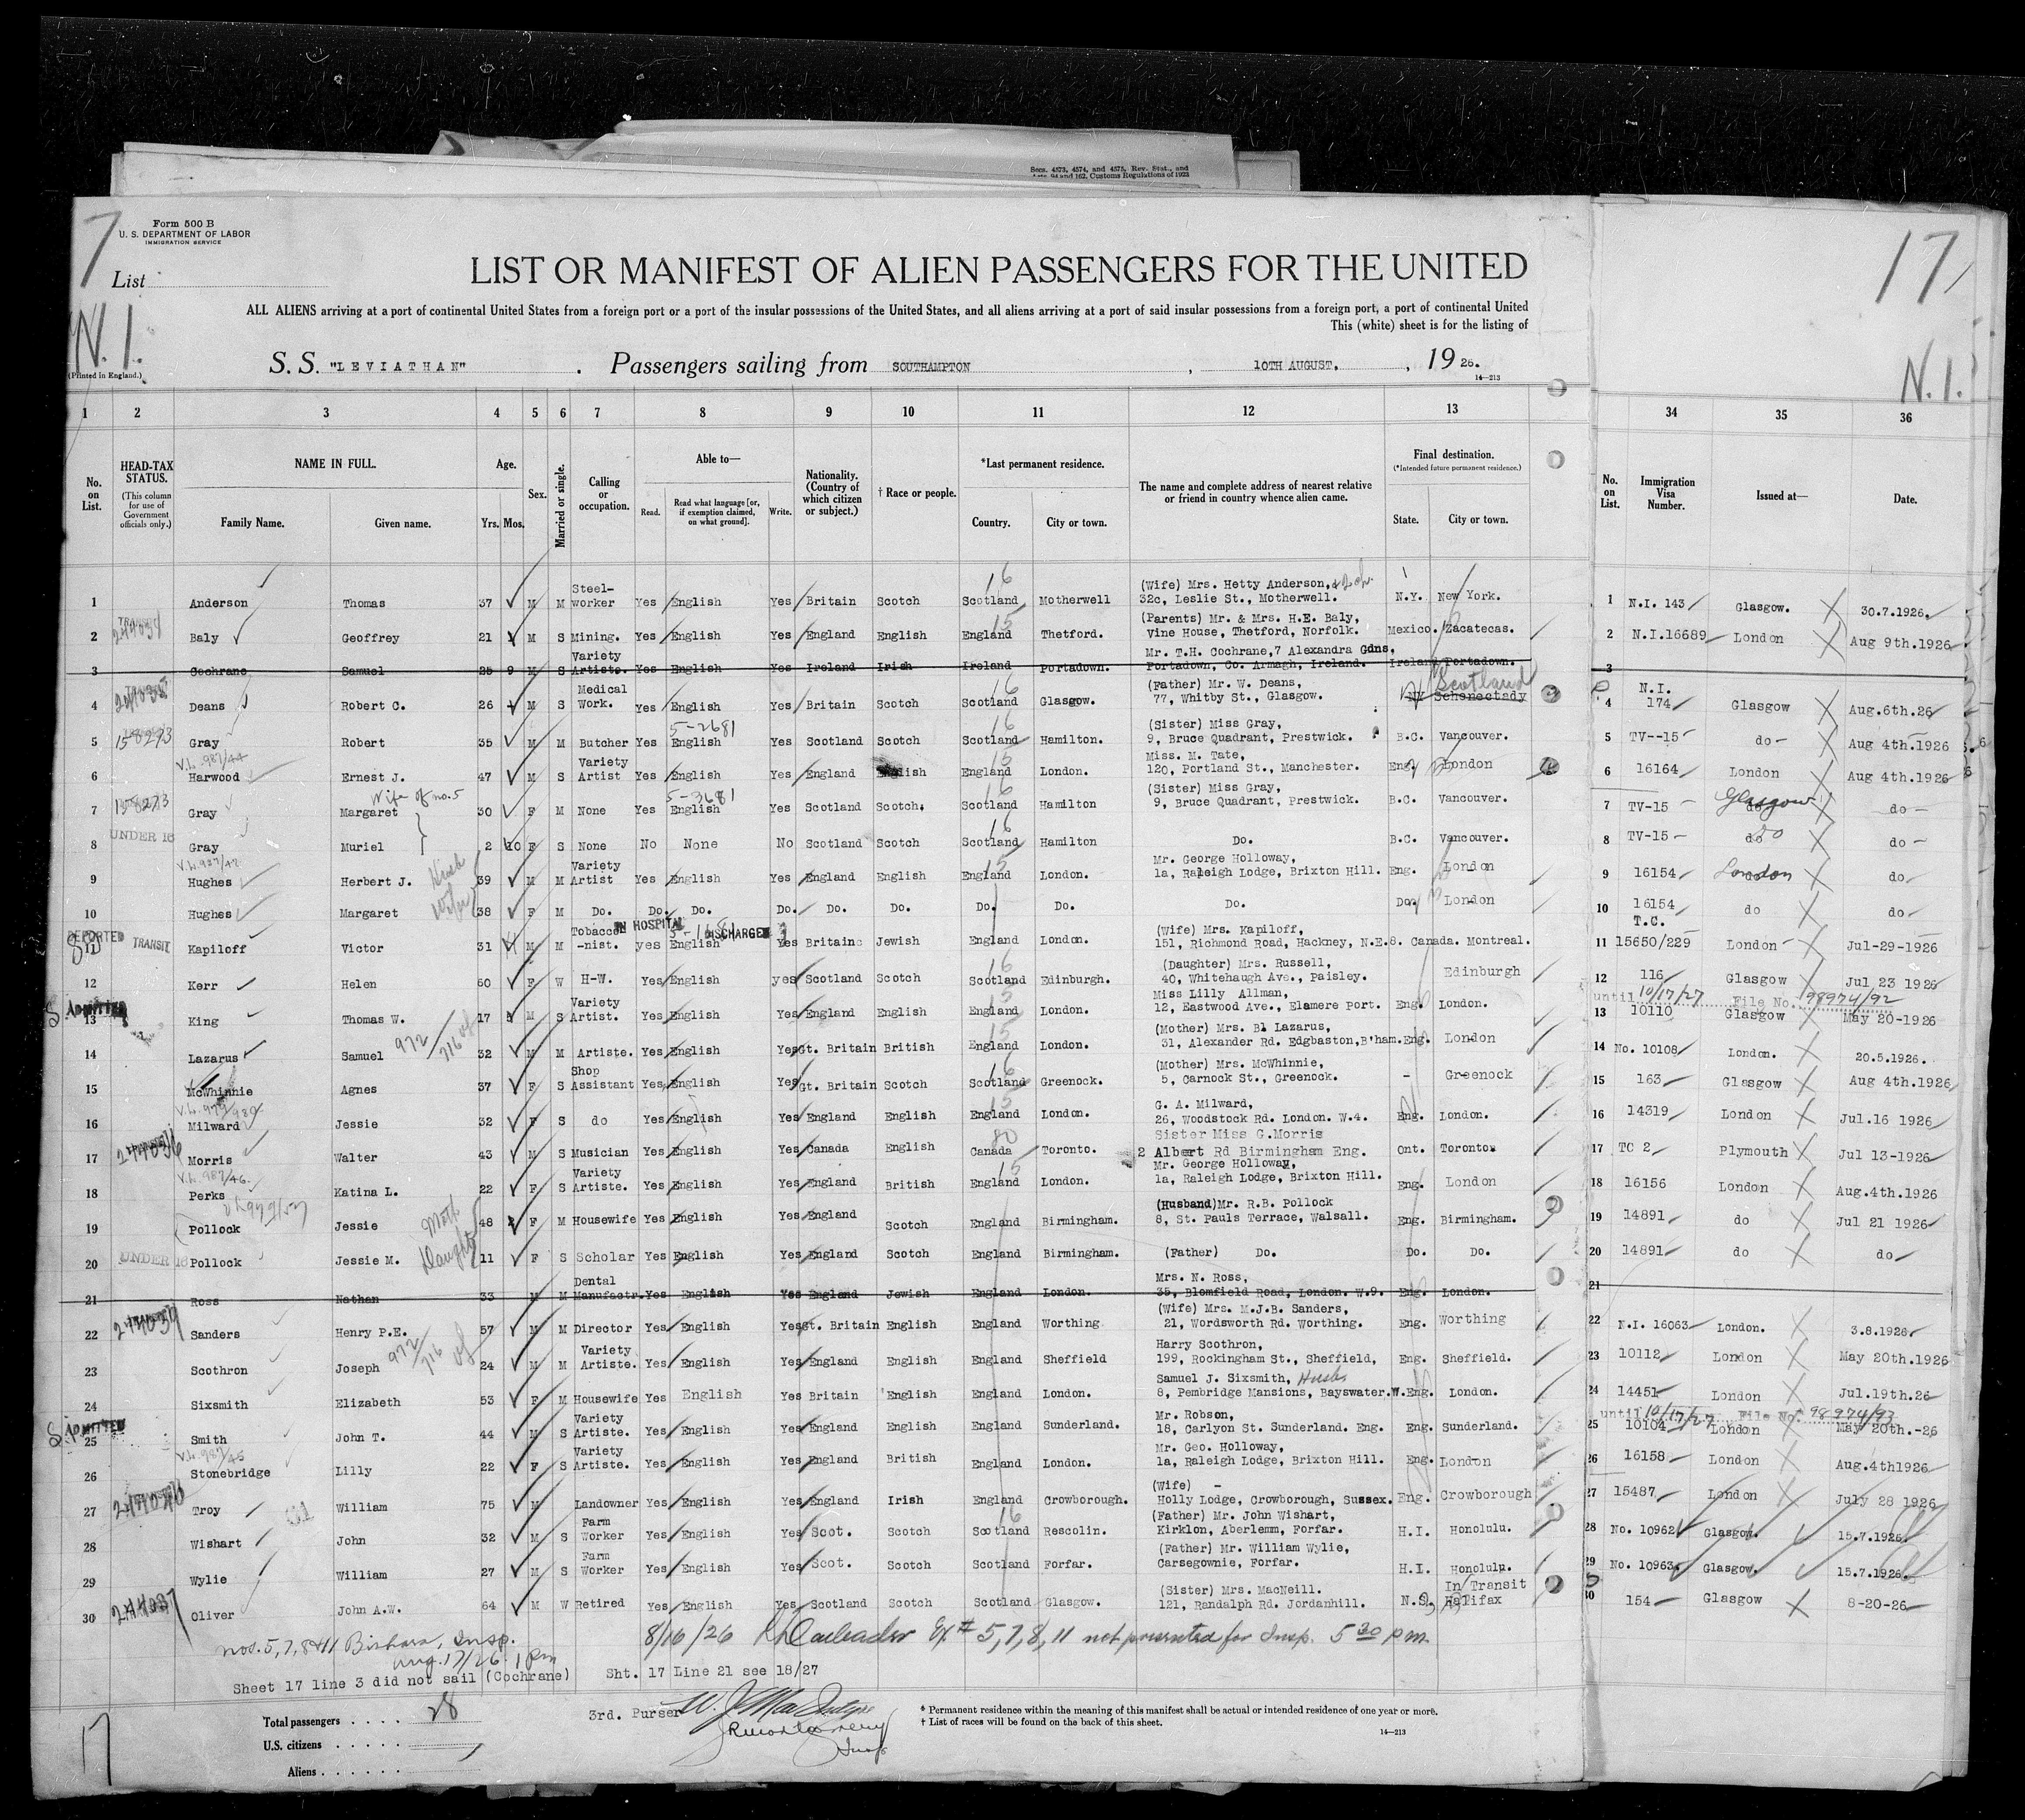 Secs. 4573, 4574, and 4575, Rev. Stat., and
94 and 162, Customs Regulations of 1923
Form 500 B
U. S. DEPARTMENT OF LABOR
IMMIGRATION SERVICE
7
17
List
LIST OR MANIFEST OF ALIEN PASSENGERS FOR THE UNITED
ALL ALIENS arriving at a port of continental United States from a foreign port or a port of the insular possessions of the United States, and all aliens arriving at a port of said insular possessions from a foreign port, a port of continental United
This (white) sheet is for the listing of
N.I.
N.I.
(Printed in England.)
S. S. "LEVIATHAN" . Passengers sailing from SOUTHAMPTON , 10TH AUGUST, , 19 26.
14—213
1 2 3 4 5 6 7 8 9 10 11 12 13 34 35 36
No. on List.
HEAD-TAX STATUS.
(This column for use of Government officials only.)
NAME IN FULL.
Family Name. Given name.
Age.
Yrs. Mos.
Sex.
Married or single.
Calling or occupation.
Able to—
Read. Read what language [or, if exemption claimed, on what ground]. Write.
Nationality. (Country of which citizen or subject.)
† Race or people.
*Last permanent residence.
Country. City or town.
The name and complete address of nearest relative or friend in country whence alien came.
Final destination.
(*Intended future permanent residence.)
State. City or town.
No. on List.
Immigration Visa Number.
Issued at—
Date.
1 Anderson Thomas 37 M M Steel-worker Yes English Yes Britain Scotch Scotland Motherwell (Wife) Mrs. Hetty Anderson, 32c, Leslie St., Motherwell. N.Y. New York. 1 N.I. 143 Glasgow. 30.7.1926.
2 Baly Geoffrey 21 M S Mining. Yes English Yes England English England Thetford. (Parents) Mr. & Mrs. H.E. Baly, Vine House, Thetford, Norfolk. Mexico. Zacatecas. 2 N.I.16689 London Aug 9th.1926
3 Cochrane Samuel 25 9 M S Variety Artiste. Yes English Yes Ireland Irish Ireland Portadown. Mr. T.H. Cochrane, 7 Alexandra Gdns, Portadown, Co. Armagh, Ireland. Ireland Portadown. 3
4 Deans Robert C. 26 M S Medical Work. Yes English Yes Britain Scotch Scotland Glasgow. (Father) Mr. W. Deans, 77, Whitby St., Glasgow. NY Schenectady Scotland 4 N.I. 174 Glasgow Aug.6th.26
5 158273 Gray Robert 35 M M Butcher Yes English 5-2681 Yes Scotland Scotch Scotland Hamilton. (Sister) Miss Gray, 9, Bruce Quadrant, Prestwick. B.C. Vancouver. 5 TV--15 do Aug 4th.1926
6 Harwood Ernest J. 47 M S Variety Artist Yes English Yes England English England London. Miss. M. Tate, 120, Portland St., Manchester. Eng. London 6 16164 London Aug 4th.1926
7 158273 Gray Margaret Wife of no.5 30 F M None Yes English Yes Scotland Scotch. Scotland Hamilton (Sister) Miss Gray, 9, Bruce Quadrant, Prestwick. B.C. Vancouver. 7 TV-15 do Glasgow do
8 UNDER 16 Gray Muriel 2 10 F S None No None No Scotland Scotch Scotland Hamilton Do. B.C. Vancouver. 8 TV-15 do do do
9 Hughes Herbert J. 39 M M Variety Artist Yes English Yes England English England London. Mr. George Holloway, 1a, Raleigh Lodge, Brixton Hill. Eng. London 9 16154 London do
10 Hughes Margaret Wife 38 F M Do. Do. Do. Do. Do. Do. Do. Do. Do. Do. London 10 16154 do do
11 DEPORTED TRANSIT Kapiloff Victor 31 M M Tobacco-nist. yes English IN HOSPITAL DISCHARGED Yes Britain Jewish England London. (Wife) Mrs. Kapiloff, 151, Richmond Road, Hackney, N.E.8. Canada. Montreal. 11 T.C. 15650/229 London Jul-29-1926
12 Kerr Helen 60 F W H-W. Yes English yes Scotland Scotch Scotland Edinburgh. (Daughter) Mrs. Russell, 40, Whitehaugh Ave., Paisley. Edinburgh 12 116 Glasgow Jul 23 1926
until 10/17/27 File No. 98974/92
13 ADMITTED King Thomas W. 17 M S Variety Artist. Yes English Yes England English England London. Miss Lilly Allman, 12, Eastwood Ave., Elamere Port. Eng. London. 13 10110 Glasgow May 20-1926
14 Lazarus Samuel 972/716 of 32 M M Artiste. Yes English Yes Gt. Britain British England London. (Mother) Mrs. Bl Lazarus, 31, Alexander Rd. Edgbaston, B'ham. Eng. London 14 No. 10108 London. 20.5.1926.
15 McWhinnie Agnes 37 F S Shop Assistant Yes English Yes Gt. Britain Scotch Scotland Greenock. (Mother) Mrs. McWhinnie, 5, Carnock St., Greenock. - Greenock 15 163 Glasgow Aug 4th.1926
16 Milward Jessie 32 F S do Yes English Yes England English England London. G. A. Milward, 26, Woodstock Rd. London. W.4. Eng. London. 16 14319 London Jul.16 1926
17 Morris Walter 43 M S Musician Yes English Yes Canada English Canada Toronto. Sister Miss G.Morris 2 Albert Rd Birmingham Eng. Ont. Toronto 17 TC 2 Plymouth Jul 13-1926
18 Perks Katina L. 22 F S Variety Artiste. Yes English Yes England British England London. Mr. George Holloway, 1a, Raleigh Lodge, Brixton Hill. Eng. London 18 16156 London Aug.4th.1926
19 Pollock Jessie 48 F M Housewife Yes English Yes England Scotch England Birmingham. (Husband) Mr. R.B. Pollock 8, St. Pauls Terrace, Walsall. Eng. Birmingham. 19 14891 do Jul 21 1926
20 UNDER 16 Pollock Jessie M. Daughter 11 F S Scholar Yes English Yes England Scotch England Birmingham. (Father) Do. Do. Do. 20 14891 do do
21 Ross Nathan 33 M M Dental Manufactr. Yes English Yes England Jewish England London. Mrs. N. Ross, 35, Blomfield Road, London. W.9. Eng. London. 21
22 Sanders Henry P.E. 57 M M Director Yes English Yes Gt. Britain English England Worthing (Wife) Mrs. M.J.B. Sanders, 21, Wordsworth Rd. Worthing. Eng. Worthing 22 N.I. 16063 London. 3.8.1926
23 Scothron Joseph 972/716 of 24 M M Variety Artiste. Yes English Yes England English England Sheffield Harry Scothron, 199, Rockingham St., Sheffield, Eng. Sheffield. 23 10112 London May 20th.1926
24 Sixsmith Elizabeth 53 F M Housewife Yes English Yes Britain English England London. Samuel J. Sixsmith, 8, Pembridge Mansions, Bayswater.W. Eng. London. 24 14451 London Jul.19th.26
until 10/17/27 File No. 98974/93
25 ADMITTED Smith John T. 44 M S Variety Artiste. Yes English Yes England English England Sunderland. Mr. Robson, 18, Carlyon St. Sunderland. Eng. Eng. Sunderland. 25 10104 London May 20th.-26
26 Stonebridge Lilly 22 F S Variety Artiste. Yes English Yes England British England London. Mr. Geo. Holloway, 1a, Raleigh Lodge, Brixton Hill. Eng. London 26 16158 London Aug.4th1926
27 Troy William 75 M Landowner Yes English Yes England Irish England Crowborough. (Wife) - Holly Lodge, Crowborough, Sussex. Eng. Crowborough 27 15487 London July 28 1926
28 Wishart John 32 M S Farm Worker Yes English Yes Scot. Scotch Scotland Rescolin. (Father) Mr. John Wishart, Kirklon, Aberlemm, Forfar. H.I. Honolulu. 28 No. 10962 Glasgow. 15.7.1926.
29 Wylie William 27 M S Farm Worker Yes English Yes Scot. Scotch Scotland Forfar. (Father) Mr. William Wylie, Carsegownie, Forfar. H.I. Honolulu. 29 No. 10963 Glasgow. 15.7.1926.
30 Oliver John A.W. 64 M W Retired Yes English Yes Scotland Scotch Scotland Glasgow. (Sister) Mrs. MacNeill. 121, Randalph Rd. Jordanhill. N.S. In Transit Halifax 30 154 Glasgow 8-20-26
nos. 5, 7, 8 & 11 Insp. Aug. 17/26 1 pm
8/16/26 # 5, 7, 8, 11 not presented for Insp. 5 30 pm
Sheet 17 line 3 did not sail (Cochrane)
Sht. 17 Line 21 see 18/27
Total passengers 28
U.S. citizens
Aliens
3rd. Purser
* Permanent residence within the meaning of this manifest shall be actual or intended residence of one year or more.
† List of races will be found on the back of this sheet.
14—213
17